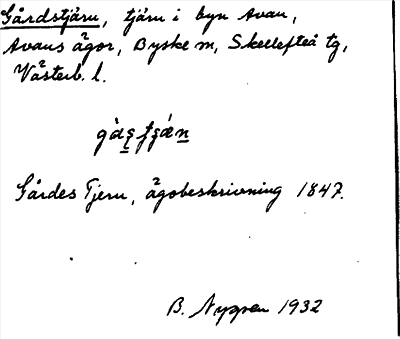 Gårdstjärn, tjärn i byn Avan,
Avans ägor, Byske sn, Skellefteå tg,
Västerb. l.
Gårdes Tjern, ägobeskrivning 1847.
B. Nygren 1932